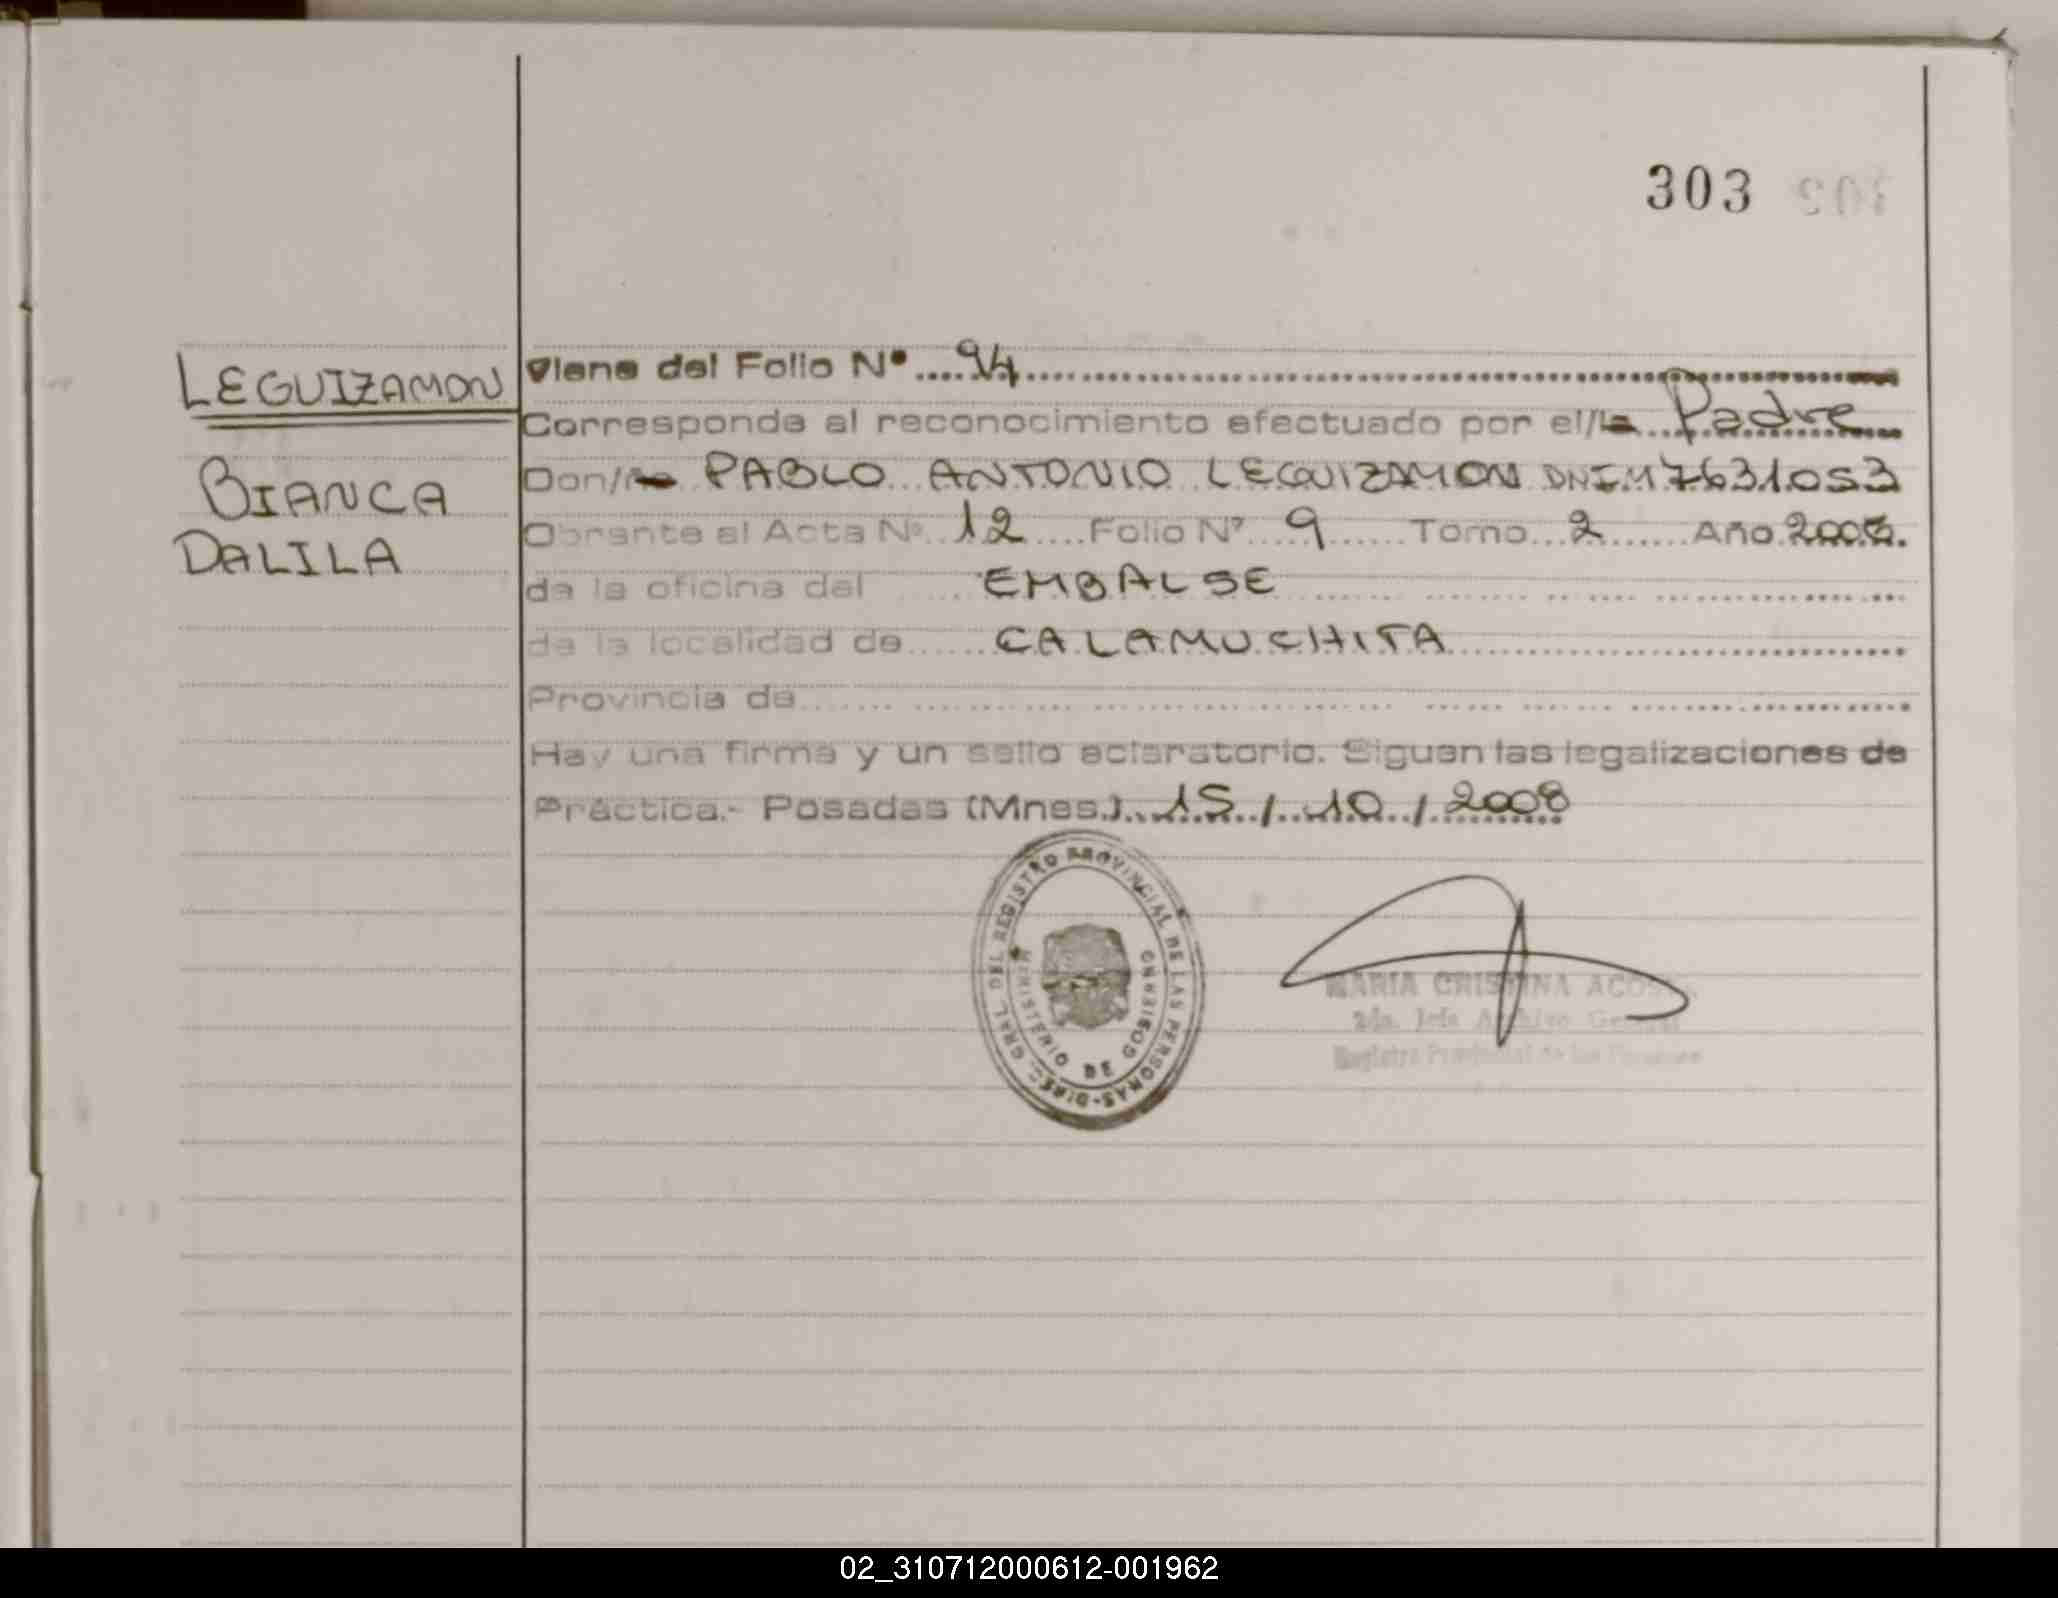 303
LEGUIZAMON
BIANCA
DALILA
Viene del Folio Nº....94....
Corresponde al reconocimiento efectuado por el/la...Padre
Don/ña PABLO ANTONIO LEGUIZAMON DNI.M 7631053
Obrante al Acta Nº..12....Folio Nº.....9......Tomo...2.......Año
de la oficina del ......EMBALSE
de la localidad de......CALAMUCHITA
Provincia de
Hay una firma y un sello aclaratorio. Siguen las legalizaciones de
Práctica.- Posadas (Mnes.)...15../..10../.2008
DIREC. GRAL. DEL REGISTRO PROVINCIAL DE LAS PERSONAS
MINISTERIO DE GOBIERNO
MARIA CRISTINA ACOSTA
2da. Jefe Archivo General
Registro Provincial de las Personas
02_310712000612-001962